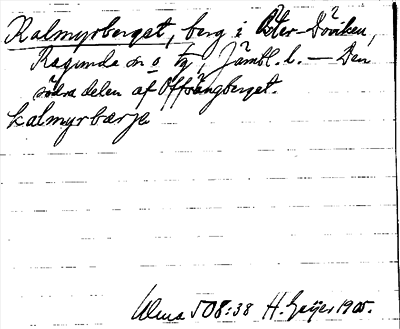 Kalmyrberget, berg i Öster-Döviken,
Ragunda sn o tg, Jämtl. l. — Den
södra delen af Offerängberget.
kalmyrbærje
Ulma 508:38 H. Geijer 1905.